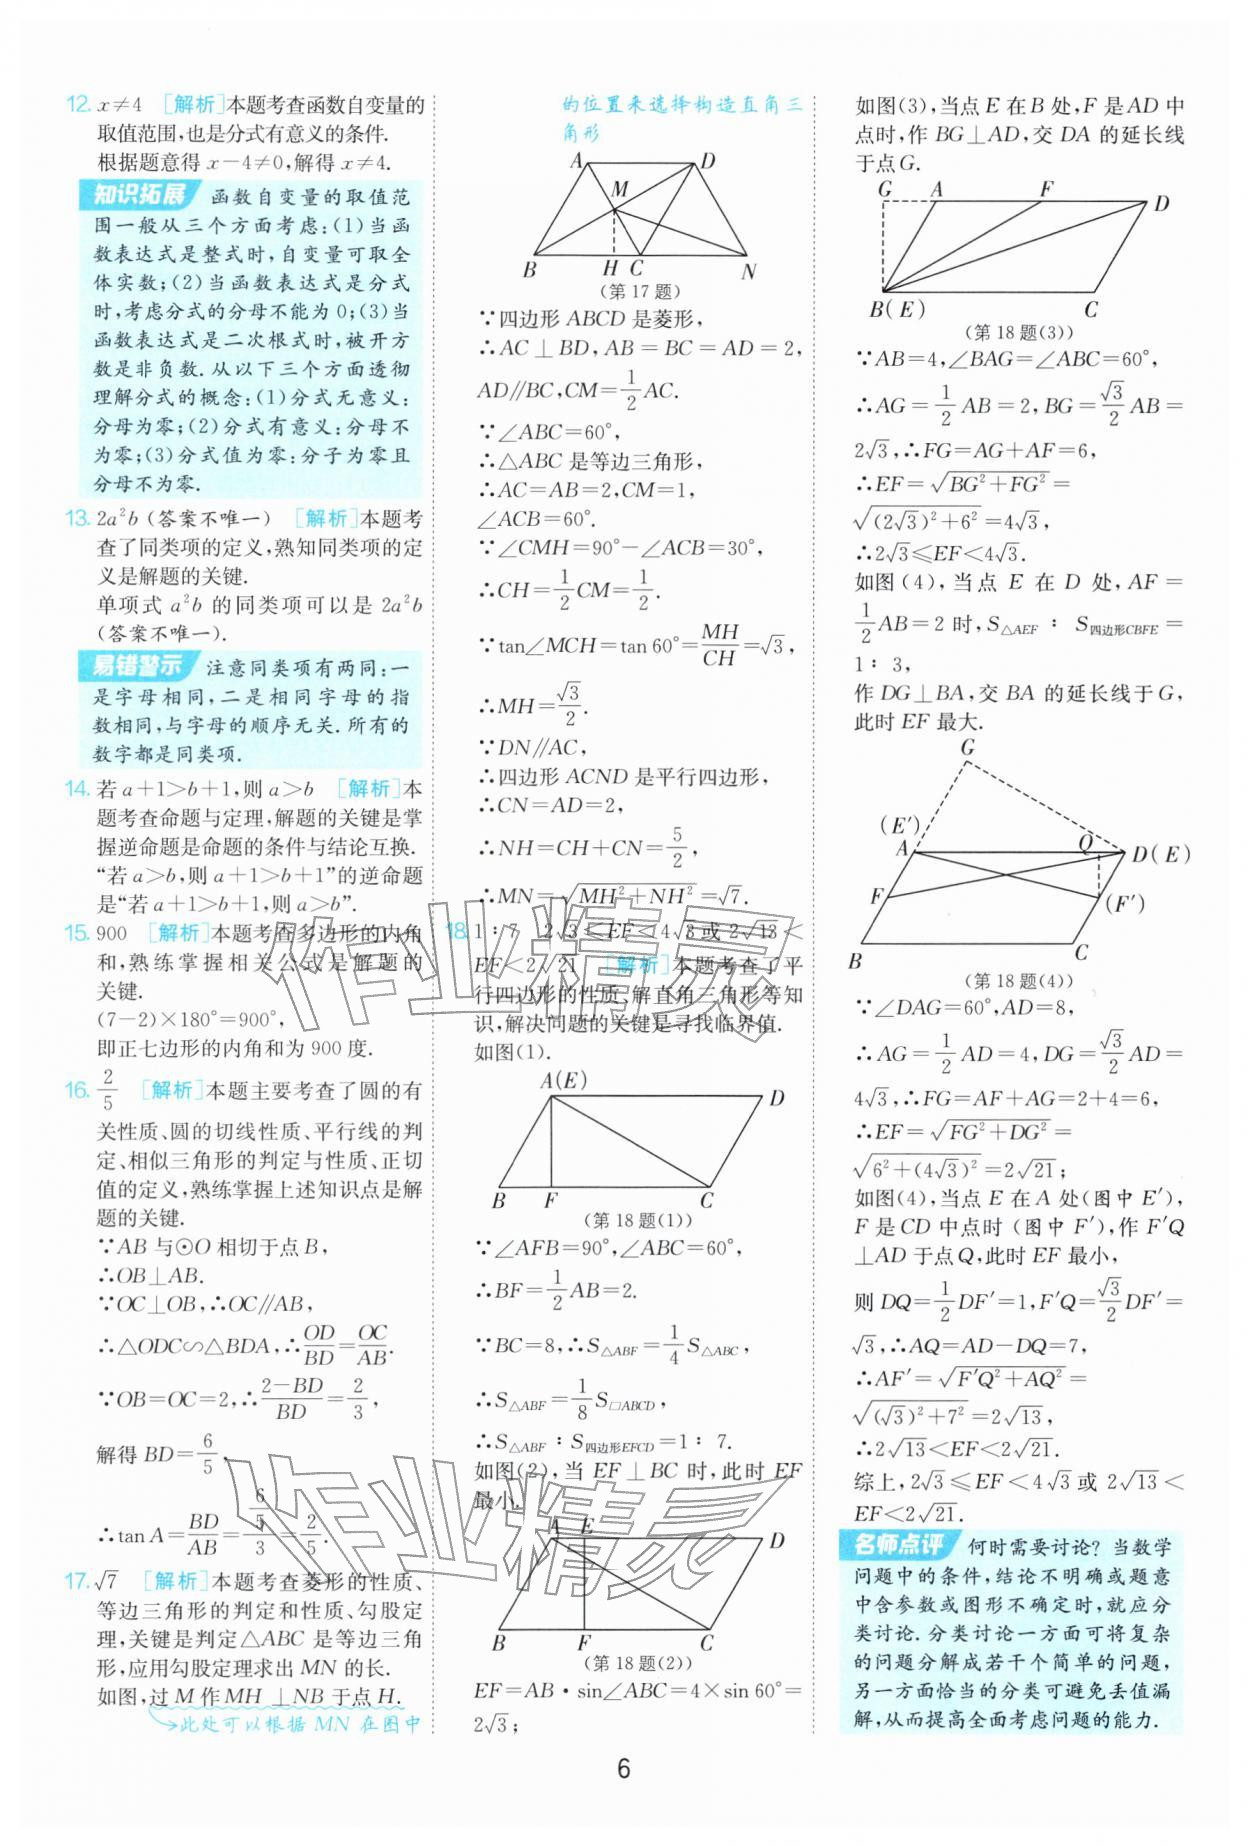 12. x≠4 [解析]本题考查函数自变量的
取值范围,也是分式有意义的条件.
根据题意得 x-4≠0,解得 x≠4.
知识拓展 函数自变量的取值范
围一般从三个方面考虑:(1)当函
数表达式是整式时,自变量可取全
体实数;(2)当函数表达式是分式
时,考虑分式的分母不能为0;(3)当
函数表达式是二次根式时,被开方
数是非负数.从以下三个方面透彻
理解分式的概念:(1)分式无意义:
分母为零;(2)分式有意义:分母不
为零;(3)分式值为零:分子为零且
分母不为零.
13. 2a²b(答案不唯一) [解析]本题考
查了同类项的定义,熟知同类项的定
义是解题的关键.
单项式 a²b 的同类项可以是 2a²b
(答案不唯一).
易错警示 注意同类项有两同:一
是字母相同,二是相同字母的指
数相同,与字母的顺序无关.所有的
数字都是同类项.
14. 若 a+1>b+1,则 a>b [解析]本
题考查命题与定理,解题的关键是掌
握逆命题是命题的条件与结论互换.
“若 a>b,则 a+1>b+1”的逆命题
是“若 a+1>b+1,则 a>b”.
15. 900 [解析]本题考查多边形的内角
和,熟练掌握相关公式是解题的
关键.
(7-2)×180°=900°,
即正七边形的内角和为 900 度.
16. 2/5 [解析]本题主要考查了圆的有
关性质、圆的切线性质、平行线的判
定、相似三角形的判定与性质、正切
值的定义,熟练掌握上述知识点是解
题的关键.
∵AB 与⊙O 相切于点 B,
∴OB⊥AB.
∵OC⊥OB,∴OC∥AB,
∴△ODC∽△BDA,∴OD/BD=OC/AB.
∵OB=OC=2,∴(2-BD)/BD=2/3,
解得 BD=6/5,
∴tan A=BD/AB=(6/5)/3=2/5.
17. √7 [解析]本题考查菱形的性质、
等边三角形的判定和性质、勾股定
理,关键是判定△ABC 是等边三角
形,应用勾股定理求出 MN 的长.
如图,过 M 作 MH⊥NB 于点 H.
→此处可以根据 MN 在图中
的位置来选择构造直角三
角形
A D
M
B H C N
(第 17 题)
∵四边形 ABCD 是菱形,
∴AC⊥BD,AB=BC=AD=2,
AD∥BC,CM=1/2 AC.
∵∠ABC=60°,
∴△ABC 是等边三角形,
∴AC=AB=2,CM=1,
∠ACB=60°.
∵∠CMH=90°-∠ACB=30°,
∴CH=1/2 CM=1/2.
∵tan∠MCH=tan 60°=MH/CH=√3,
∴MH=√3/2.
∵DN∥AC,
∴四边形 ACND 是平行四边形,
∴CN=AD=2,
∴NH=CH+CN=5/2,
∴MN=√(MH²+NH²)=√7.
18. 1∶7 2√3≤EF<4√3或2√13<
EF<2√21 [解析]本题考查了平
行四边形的性质、解直角三角形等知
识,解决问题的关键是寻找临界值.
如图(1).
A(E) D
B F C
(第 18 题(1))
∵∠AFB=90°,∠ABC=60°,
∴BF=1/2 AB=2.
∵BC=8,∴S△ABF=1/4 S△ABC,
∴S△ABF=1/8 S□ABCD,
∴S△ABF∶S四边形EFCD=1∶7.
如图(2),当 EF⊥BC 时,此时 EF
最小.
A E D
B F C
(第 18 题(2))
EF=AB·sin∠ABC=4×sin 60°=
2√3;
如图(3),当点 E 在 B 处,F 是 AD 中
点时,作 BG⊥AD,交 DA 的延长线
于点 G.
G A F D
B(E) C
(第 18 题(3))
∵AB=4,∠BAG=∠ABC=60°,
∴AG=1/2 AB=2,BG=√3/2 AB=
2√3,∴FG=AG+AF=6,
∴EF=√(BG²+FG²)=
√((2√3)²+6²)=4√3,
∴2√3≤EF<4√3.
如图(4),当点 E 在 D 处,AF=
1/2 AB=2 时,S△AEF∶S四边形CBFE=
1∶3,
作 DG⊥BA,交 BA 的延长线于 G,
此时 EF 最大.
G
(E′)
A Q D(E)
F (F′)
B C
(第 18 题(4))
∵∠DAG=60°,AD=8,
∴AG=1/2 AD=4,DG=√3/2 AD=
4√3,∴FG=AF+AG=2+4=6,
∴EF=√(FG²+DG²)=
√(6²+(4√3)²)=2√21;
如图(4),当点 E 在 A 处(图中 E′),
F 是 CD 中点时(图中 F′),作 F′Q
⊥AD 于点 Q,此时 EF 最小,
则 DQ=1/2 DF′=1,F′Q=√3/2 DF′=
√3,∴AQ=AD-DQ=7,
∴AF′=√(F′Q²+AQ²)=
√((√3)²+7²)=2√13,
∴2√13<EF<2√21.
综上,2√3≤EF<4√3或2√13<
EF<2√21.
名师点评 何时需要讨论?当数学
问题中的条件,结论不明确或题意
中含参数或图形不确定时,就应分
类讨论.分类讨论一方面可将复杂
的问题分解成若干个简单的问题,
另一方面恰当的分类可避免丢值漏
解,从而提高全面考虑问题的能力.
作业精灵
作业精灵
6